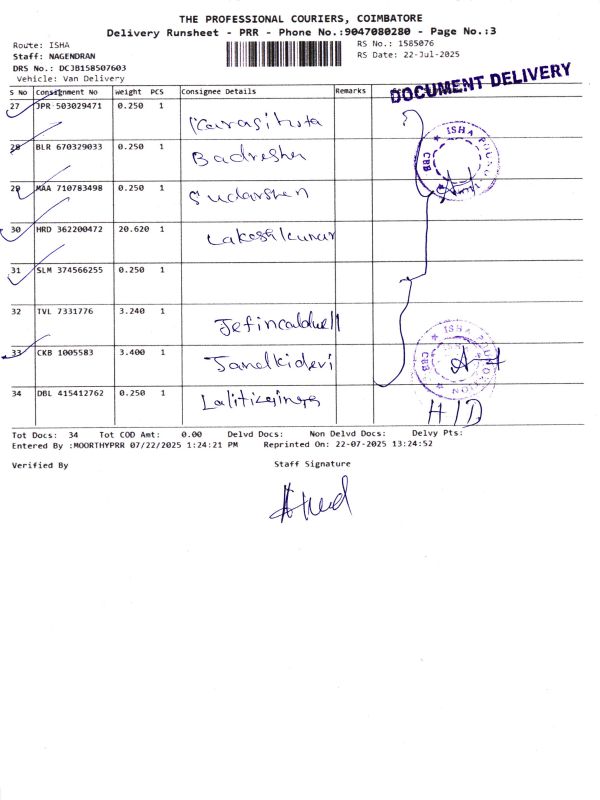 THE PROFESSIONAL COURIERS, COIMBATORE
Delivery Runsheet - PRR - Phone No.:9047080280 - Page No.:3
Route: ISHA
RS No.: 1585076
Staff: NAGENDRAN
RS Date: 22-Jul-2025
DRS No.: DCJB158507603
Vehicle: Van Delivery
DOCUMENT DELIVERY
S No Consignment No Weight PCS Consignee Details Remarks
27 JPR 503029471 0.250 1
28 BLR 670329033 0.250 1 Badresher
29 MAA 710783498 0.250 1 Sudarshen
30 HRD 362200472 20.620 1 Lakeshkumar
31 SLM 374566255 0.250 1
32 TVL 7331776 3.240 1 Jefincaldwell
33 CKB 1005583 3.400 1 Janelkidevi
34 DBL 415412762 0.250 1
ISHA FOUNDATION
CBB
ISHA FOUNDATION
CBB
H/D
Tot Docs: 34 Tot COD Amt: 0.00 Delvd Docs: Non Delvd Docs: Delvy Pts:
Entered By :MOORTHYPRR 07/22/2025 1:24:21 PM Reprinted On: 22-07-2025 13:24:52
Verified By Staff Signature